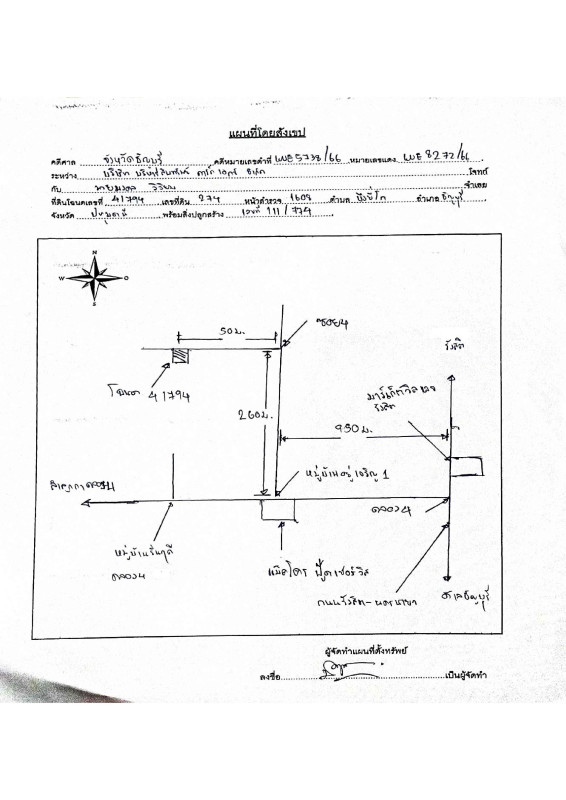 แผนที่โดยสังเขป
คดีศาล จังหวัดธัญบุรี คดีหมายเลขดำที่ ผบE5738/66 หมายเลขแดง ผบE8272/66
ระหว่าง บริษัท บริหารสินทรัพย์ จำกัด โจทก์
กับ จำเลย
ที่ดินโฉนดเลขที่ 41794 เลขที่ดิน 274 หน้าสำรวจ 1603 ตำบล บึงยี่โถ อำเภอ ธัญบุรี
จังหวัด ปทุมธานี พร้อมสิ่งปลูกสร้าง เลขที่ 111/774
N
W O
S
50 ม.
ซอย 4
รังสิต
โฉนด 41794
มาร์เก็ตวิลเลจ
รังสิต
260 ม.
950 ม.
หมู่บ้านอยู่เจริญ 1
คลอง 4
หมู่บ้านรินฤดี
คลอง 4
ถนนรังสิต-นครนายก
ศาลธัญบุรี
ผู้จัดทำแผนที่ตั้งทรัพย์
ลงชื่อ เป็นผู้จัดทำ